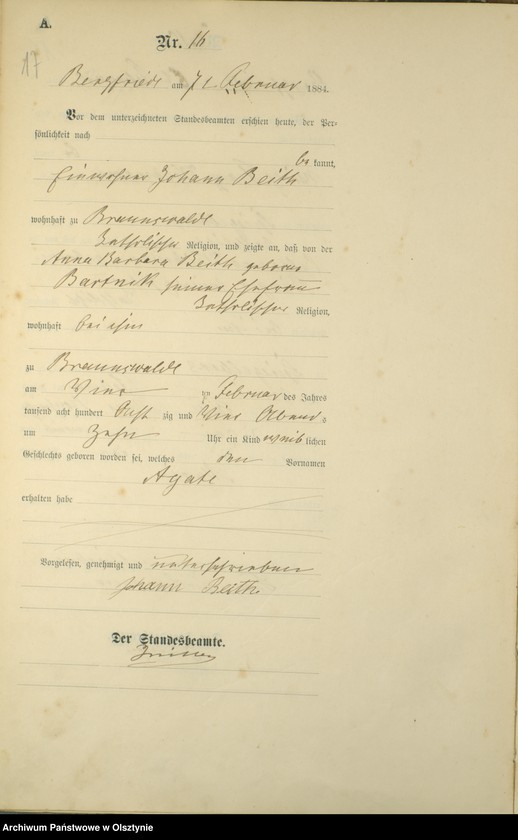 A.
Nr. 16
17
Bergfriede am 7t Februar 1884.
Vor dem unterzeichneten Standesbeamten erschien heute, der Per-
sönlichkeit nach
be kannt,
Einwohner Johann Beith
wohnhaft zu Braunswalde
katholischer Religion, und zeigte an, daß von der
Anna Barbara Beith geboren
Bartnik seiner Ehefrau
katholischer Religion,
wohnhaft bei ihm
zu Braunswalde
am Vier ten Februar des Jahres
tausend acht hundert Acht zig und Vier Abends
um Zehn Uhr ein Kind weib lichen
Geschlechts geboren worden sei, welches den Vornamen
Agate
erhalten habe
Vorgelesen, genehmigt und unterschrieben
Johann Beith
Der Standesbeamte.
Archiwum Państwowe w Olsztynie